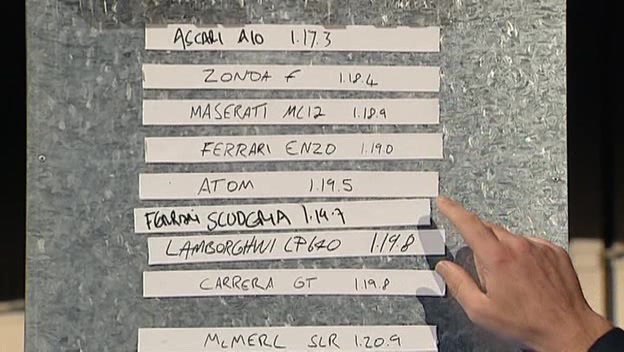 ASCARI A10 1.17.3
ZONDA F 1.18.4
MASERATI MC12 1.18.9
FERRARI ENZO 1.19.0
ATOM 1.19.5
FERRARI SCUDERIA 1.19.7
LAMBORGHINI LP640 1.19.8
CARRERA GT 1.19.8
McMERC SLR 1.20.9